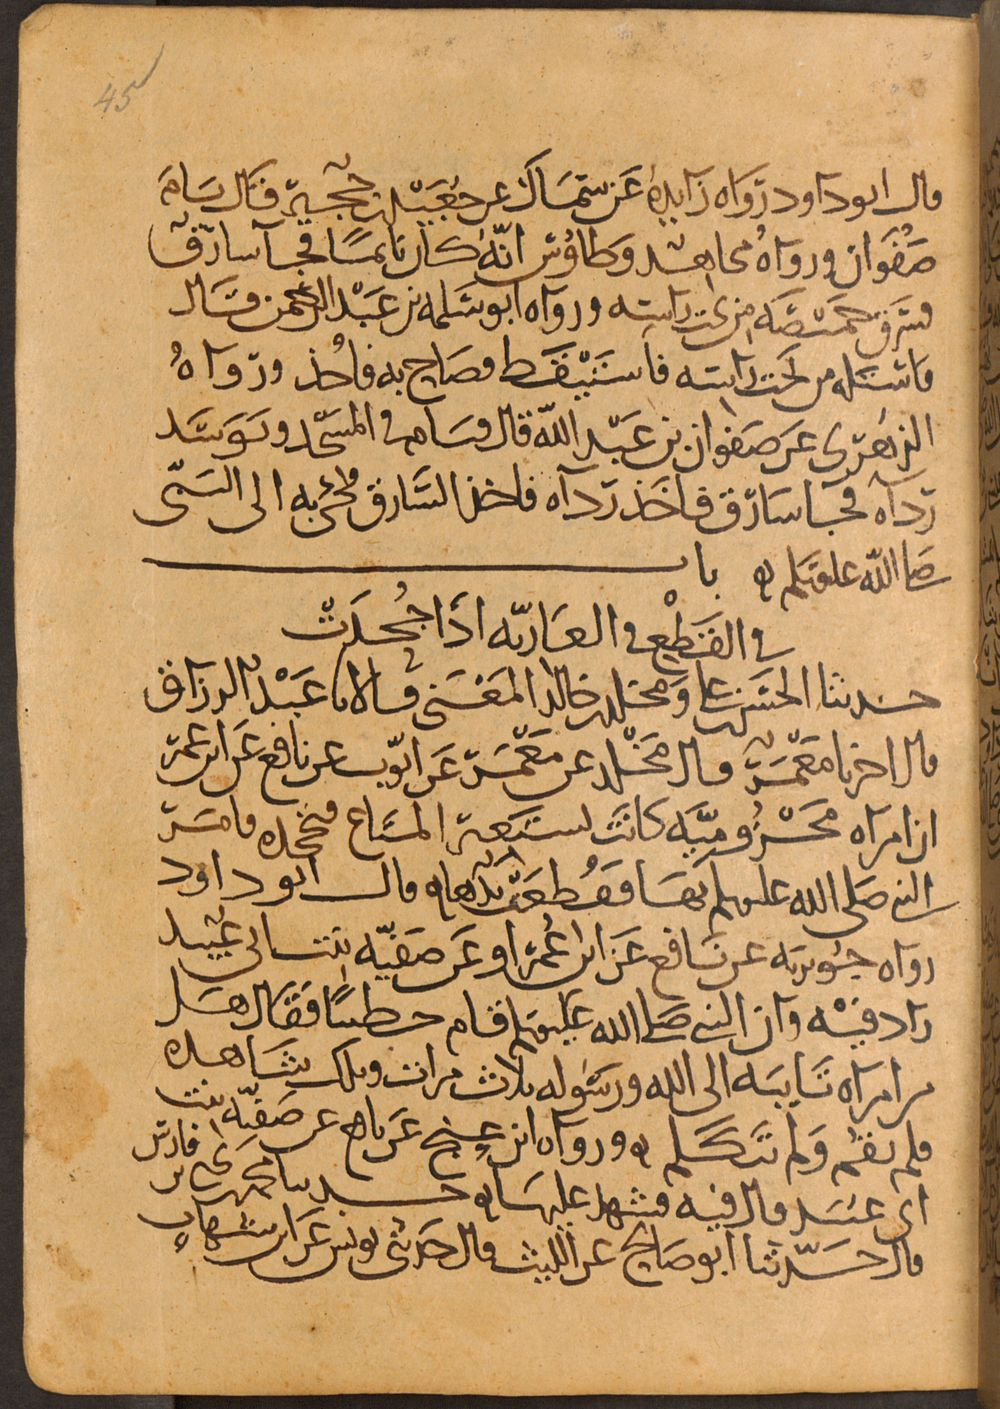 45
قال ابو داود ورواه زايدة عن سماك عن جعيد بن حجير قال نام
صفوان ورواه مجاهد وطاوس انه كان نايما فجا سارق
فسرق خميصة من تحت راسه ورواه ابو سلمه بن عبد الرحمن قال
فاستله من تحت راسه فاستيقظ فصاح به فاخذ ورواه
الزهري عن صفوان بن عبد الله قال فنام في المسجد وتوسد
رداه فجا سارق فاخذ رداه فاخذ السارق فجئ به الى النبي
صلى الله عليه وسلم ه باب
في القطع في العارية اذا جحدت
حدثنا الحسن بن علي ومخلد بن خالد المعنى قالا نا عبد الرزاق
قال اخبرنا معمر قال مخلد عن معمر عن ايوب عن نافع عن ابن عمر
ان امراه مخزومية كانت تستعير المتاع فتجحده فامر
النبي صلى الله عليه وسلم بها فقطعت يدها ه قال ابو داود
رواه جويرية عن نافع عن ابن عمر او عن صفيه بنت ابي عبيد
زاد فيه وان النبي صلى الله عليه وسلم قام خطيبا فقال هل
من امراه تايبه الى الله ورسوله ثلاث مرات وتلك شاهده
فلم تقم ولم تتكلم ه ورواه ابن غنج عن نافع عن صفيه بنت
ابي عبيد قال فيه فشهد عليها ه حدثنا محمد بن يحيى بن فارس
قال حدثنا ابو صالح عن الليث قال حدثني يونس عن ابن شهاب